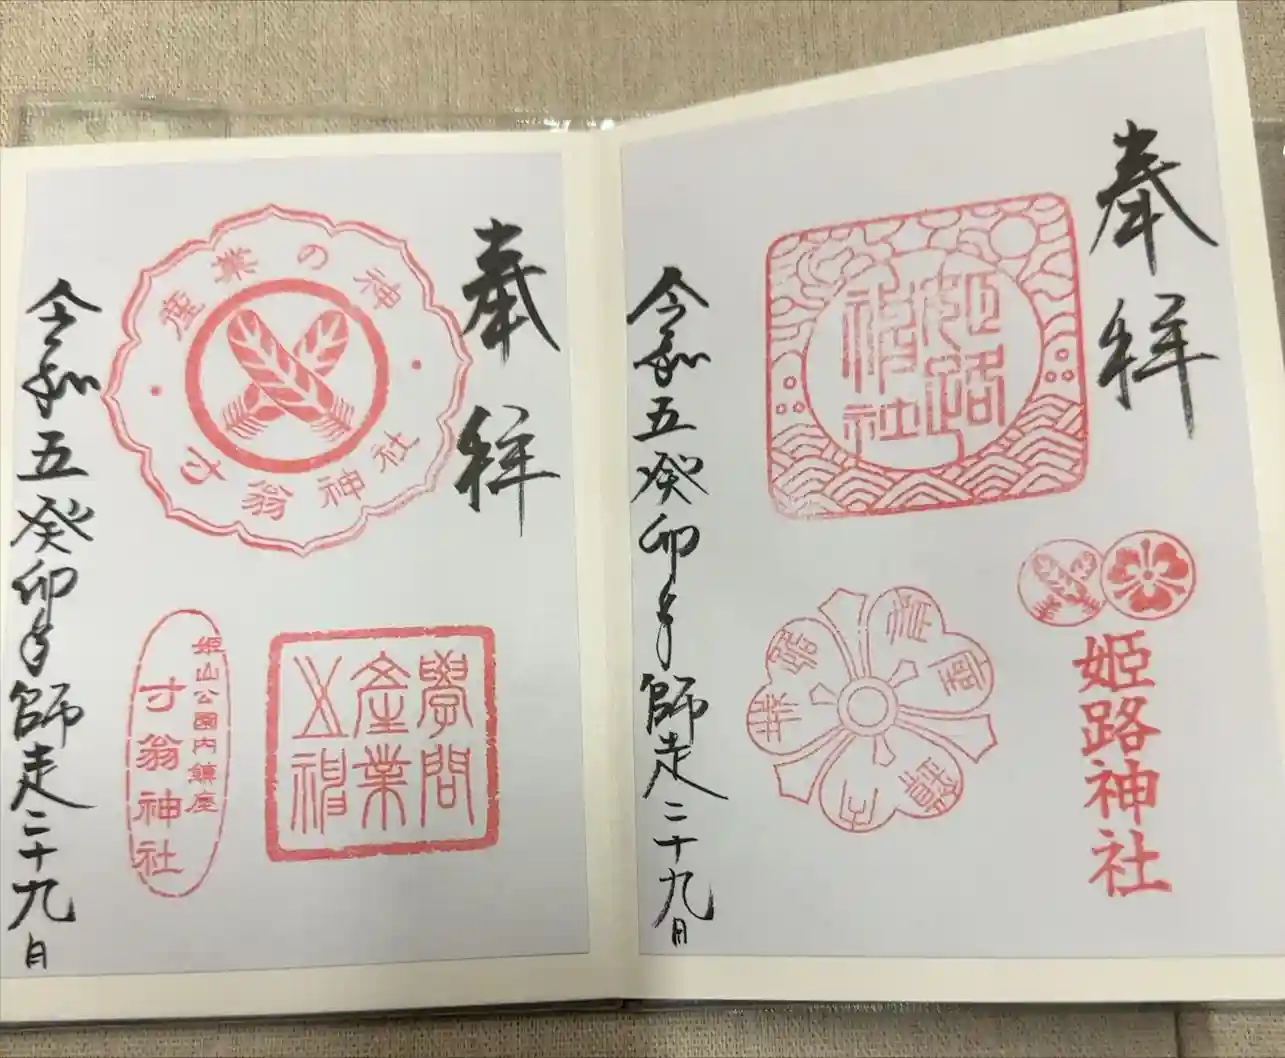 奉拝
姫路神社
姫路神社
令和五癸卯年師走二十九日
奉拝
産業の神
寸翁神社
學問
産業
之神
姫山公園内鎮座
寸翁神社
令和五癸卯年師走二十九日